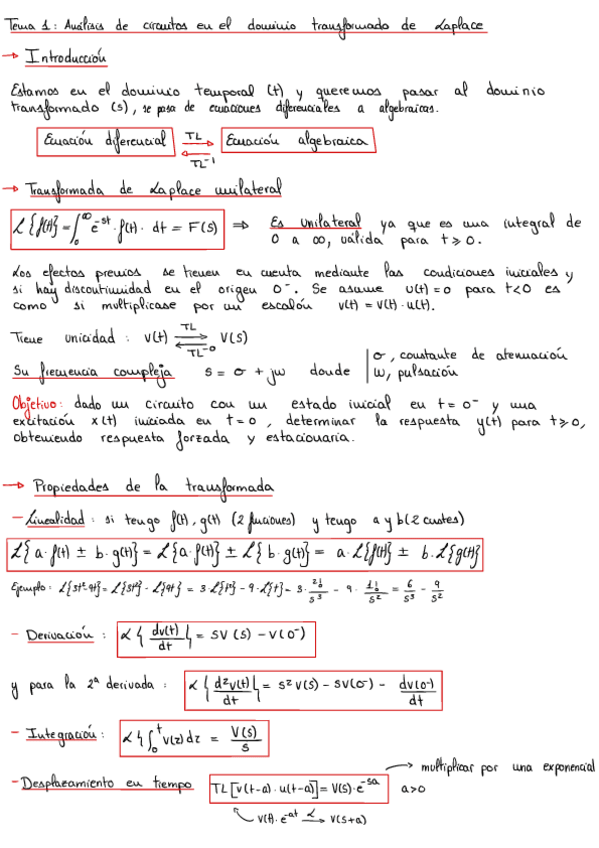 Tema 1: Análisis de circuitos en el dominio transformado de Laplace
→ Introducción
Estamos en el dominio temporal (t) y queremos pasar al dominio
transformado (s), se pasa de ecuaciones diferenciales a algebraicas.
Ecuación diferencial TL ⇄ TL⁻¹ Ecuación algebraica
→ Transformada de Laplace unilateral
ℒ{f(t)} = ∫₀^∞ e^-st · f(t) · dt = F(s) ⇒ Es unilateral ya que es una integral de
0 a ∞, válida para t ≥ 0.
Los efectos previos se tienen en cuenta mediante las condiciones iniciales y
si hay discontinuidad en el origen 0⁻. Se asume v(t)=0 para t<0 es
como si multiplicase por un escalón v(t) = v(t)·u(t).
Tiene unicidad: v(t) TL ⇄ TL⁻⁰ V(s)
Su frecuencia compleja s = σ + jw donde | σ, constante de atenuación
w, pulsación
Objetivo: dado un circuito con un estado inicial en t = 0⁻ y una
excitación x(t) iniciada en t=0, determinar la respuesta y(t) para t≥0,
obteniendo respuesta forzada y estacionaria.
→ Propiedades de la transformada
- Linealidad: si tengo f(t), g(t) (2 funciones) y tengo a y b (2 custes)
ℒ{a·f(t) ± b·g(t)} = ℒ{a·f(t)} ± ℒ{b·g(t)} = a·ℒ{f(t)} ± b·ℒ{g(t)}
Ejemplo: ℒ{3t²-9t} = ℒ{3t²} - ℒ{9t} = 3·ℒ{t²} - 9·ℒ{t} = 3·2!/s³ - 9·1!/s² = 6/s³ - 9/s²
- Derivación: ℒ{dv(t)/dt} = sV(s) - v(0⁻)
y para la 2ª derivada: ℒ{d²v(t)/dt} = s²V(s) - sv(0⁻) - dv(0⁻)/dt
- Integración: ℒ{∫₀^t v(z)dz} = V(s)/s
→ multiplicar por una exponencial
- Desplazamiento en tiempo TL[v(t-a)·u(t-a)] = V(s)·e^-sa a>0
v(t)·e^-at ℒ→ V(s+a)